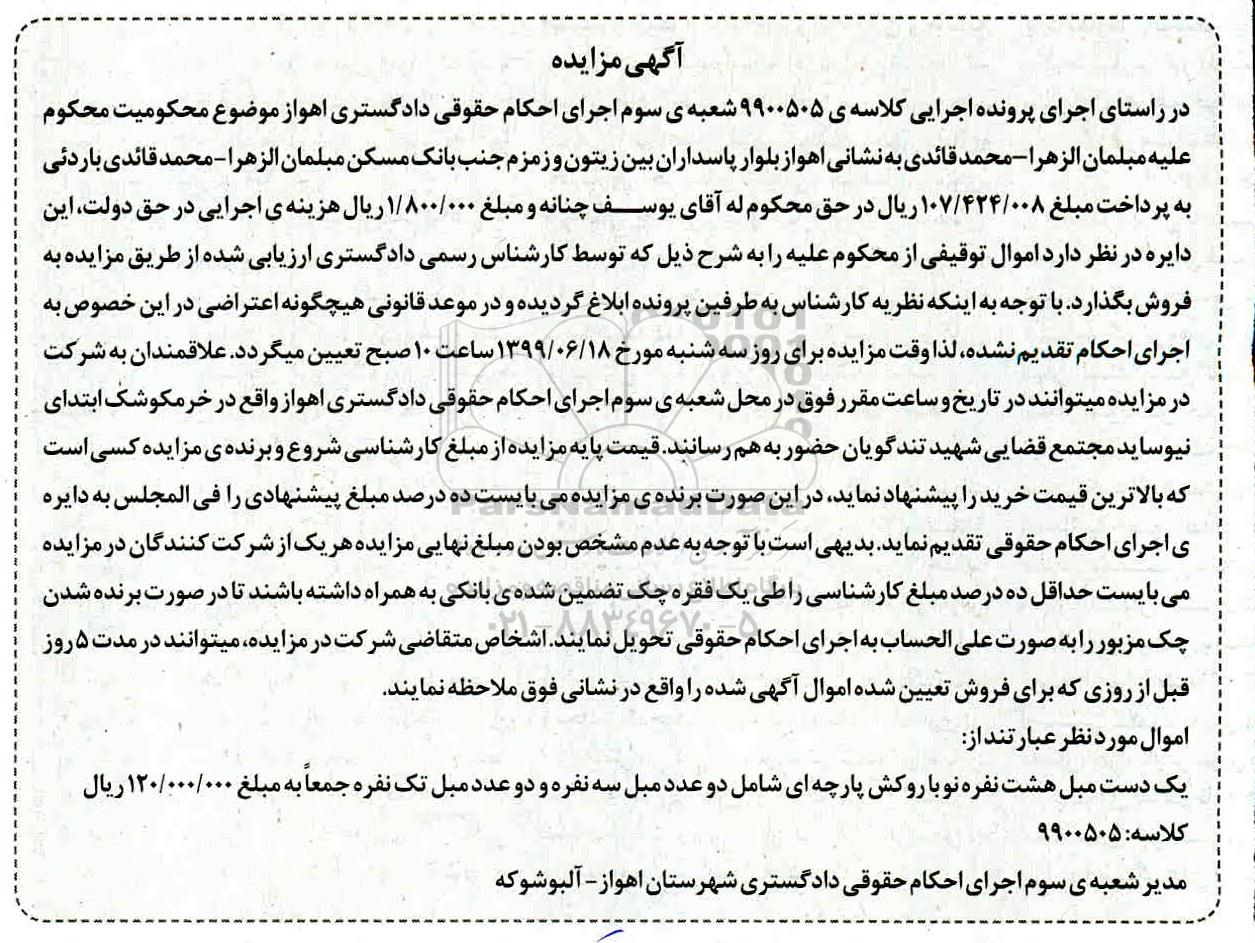 آگهی مزایده
در راستای اجرای پرونده اجرایی کلاسه ی ۹۹۰۰۵۰۵ شعبه ی سوم اجرای احکام حقوقی دادگستری اهواز موضوع محکومیت محکوم
علیه مبلمان الزهرا-محمد قائدی به نشانی اهواز بلوار پاسداران بین زیتون و زمزم جنب بانک مسکن مبلمان الزهرا-محمد قائدی باردئی
به پرداخت مبلغ ۱۰۷/۴۲۴/۰۰۸ ریال در حق محکوم له آقای یوسف چنانه و مبلغ ۱/۸۰۰/۰۰۰ ریال هزینه ی اجرایی در حق دولت، این
دایره در نظر دارد اموال توقیفی از محکوم علیه را به شرح ذیل که توسط کارشناس رسمی دادگستری ارزیابی شده از طریق مزایده به
فروش بگذارد. با توجه به اینکه نظریه کارشناس به طرفین پرونده ابلاغ گردیده و در موعد قانونی هیچگونه اعتراضی در این خصوص به
اجرای احکام تقدیم نشده، لذا وقت مزایده برای روز سه شنبه مورخ ۱۳۹۹/۰۶/۱۸ ساعت ۱۰ صبح تعیین میگردد. علاقمندان به شرکت
در مزایده میتوانند در تاریخ و ساعت مقرر فوق در محل شعبه ی سوم اجرای احکام حقوقی دادگستری اهواز واقع در خرمکوشک ابتدای
نیوساید مجتمع قضایی شهید تندگویان حضور به هم رسانند. قیمت پایه مزایده از مبلغ کارشناسی شروع و برنده ی مزایده کسی است
که بالاترین قیمت خرید را پیشنهاد نماید، در این صورت برنده ی مزایده می بایست ده درصد مبلغ پیشنهادی را فی المجلس به دایره
ParsNamadData
ی اجرای احکام حقوقی تقدیم نماید. بدیهی است با توجه به عدم مشخص بودن مبلغ نهایی مزایده هر یک از شرکت کنندگان در مزایده
می بایست حداقل ده درصد مبلغ کارشناسی را طی یک فقره چک تضمین شده ی بانکی به همراه داشته باشند تا در صورت برنده شدن
۰۲۱-۸۸۳۴۹۶۷۰-۵
چک مزبور را به صورت علی الحساب به اجرای احکام حقوقی تحویل نمایند. اشخاص متقاضی شرکت در مزایده، میتوانند در مدت ۵ روز
قبل از روزی که برای فروش تعیین شده اموال آگهی شده را واقع در نشانی فوق ملاحظه نمایند.
اموال مورد نظر عبارتند از:
یک دست مبل هشت نفره نو با روکش پارچه ای شامل دو عدد مبل سه نفره و دو عدد مبل تک نفره جمعاً به مبلغ ۱۲۰/۰۰۰/۰۰۰ ریال
کلاسه: ۹۹۰۰۵۰۵
مدیر شعبه ی سوم اجرای احکام حقوقی دادگستری شهرستان اهواز- آلبوشوکه